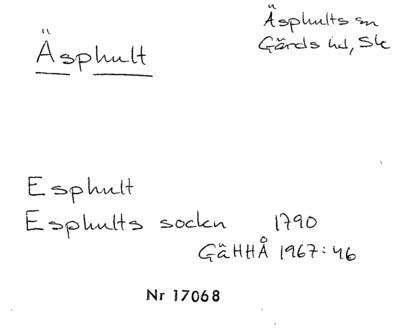 Äsphult
Äsphults sn
Gärds hd, Sk
Esphult
Esphults sockn 1790
GäHHÅ 1967:46
Nr 17068